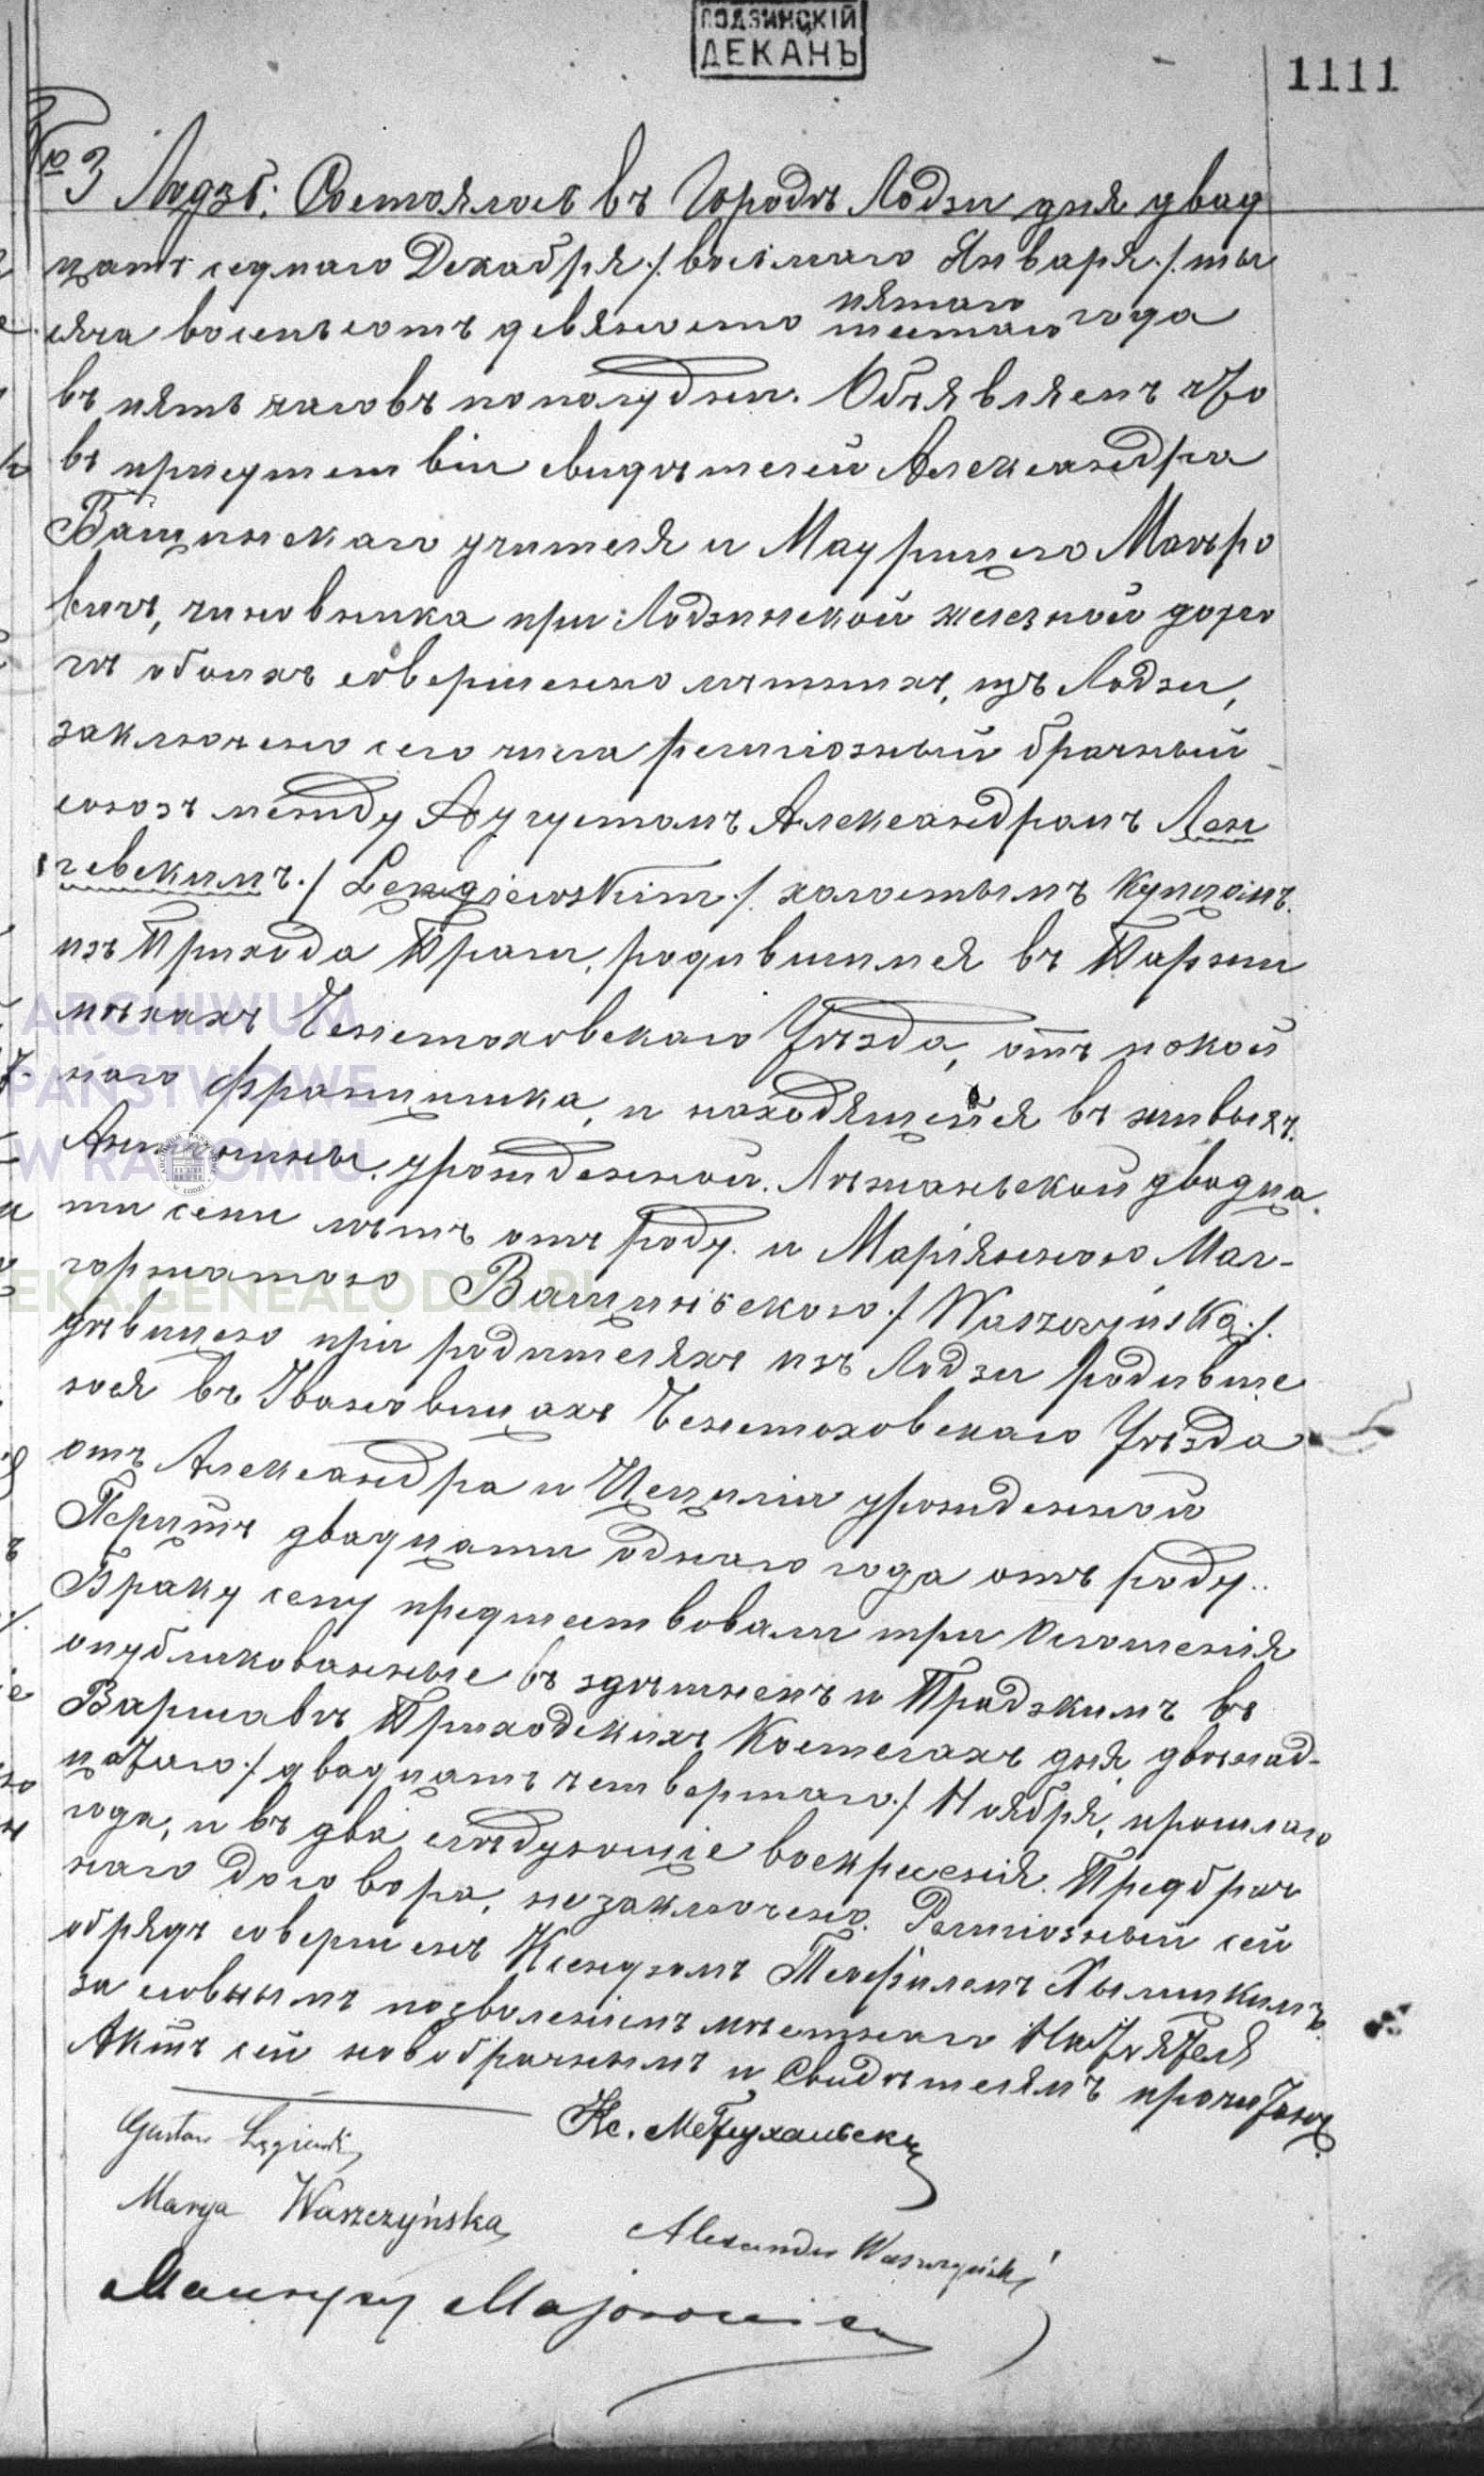 ЛОДЗИНСКІЙ
ДЕКАНЪ
1111
№ 3 Лодзь: Состоялось въ Городѣ Лодзи дня двад
цать седмаго Декабря ./ восьмаго Января ./. ты
сяча восемьсотъ девяносто пятаго
шестаго года
въ пять часовъ пополудни. Объявляемъ что
въ присутствіи свидѣтелей Александра
Ващинскаго учителя и Маурицего Маеро
вичъ, чиновника при Лодзинской железной доро
гѣ обоихъ совершеннолѣтнихъ, изъ Лодзи,
заключено сего числа религіозный брачный
союзъ между Аугустомъ Александромъ Лен
гевскимъ ./ Lengiewskim ./. холостымъ купцомъ
изъ Прихода Праги, родившимся въ Паржи
мѣхахъ Ченстоховскаго Уѣзда, отъ покой
наго Францишка, и находящейся въ живыхъ
Антонины, урожденной Лѣжанской двадца
ти семи лѣтъ отъ роду. и Маріянною Мал-
горжатою Ващинскою ./ Waszczyńską ./.
дѣвицею при родителяхъ изъ Лодзи родивше
юся въ Ивановицахъ Ченстоховскаго Уѣзда
отъ Александра и Цециліи урожденной
двадцати однаго года отъ роду..
Браку сему предшествовали три оглошенія
опубликованные въ здѣшнемъ и Прадзкимъ въ
Варшавѣ Приходскихъ Костелахъ дня двѣнад-
цатаго ./ двадцать четвертаго ./ Ноября, прошлаго
года, и въ два слѣдующіе воскресенія. Предбрач
наго договора, не заключено. Религіозный сей
обрядъ совершенъ Ксендзомъ Теофилемъ
за словнымъ позволеніемъ мѣстнаго Настоятеля
Актъ сей новобрачнымъ и Свидѣтелямъ прочитанъ.
Gustaw Lęgiewski
Кс.
Marya Waszczyńska
Alexander Waszczyński
Maurycy Majerowicz
ARCHIWUM
PAŃSTWOWE
W RADOMIU
EKA.GENEALODZY.PL